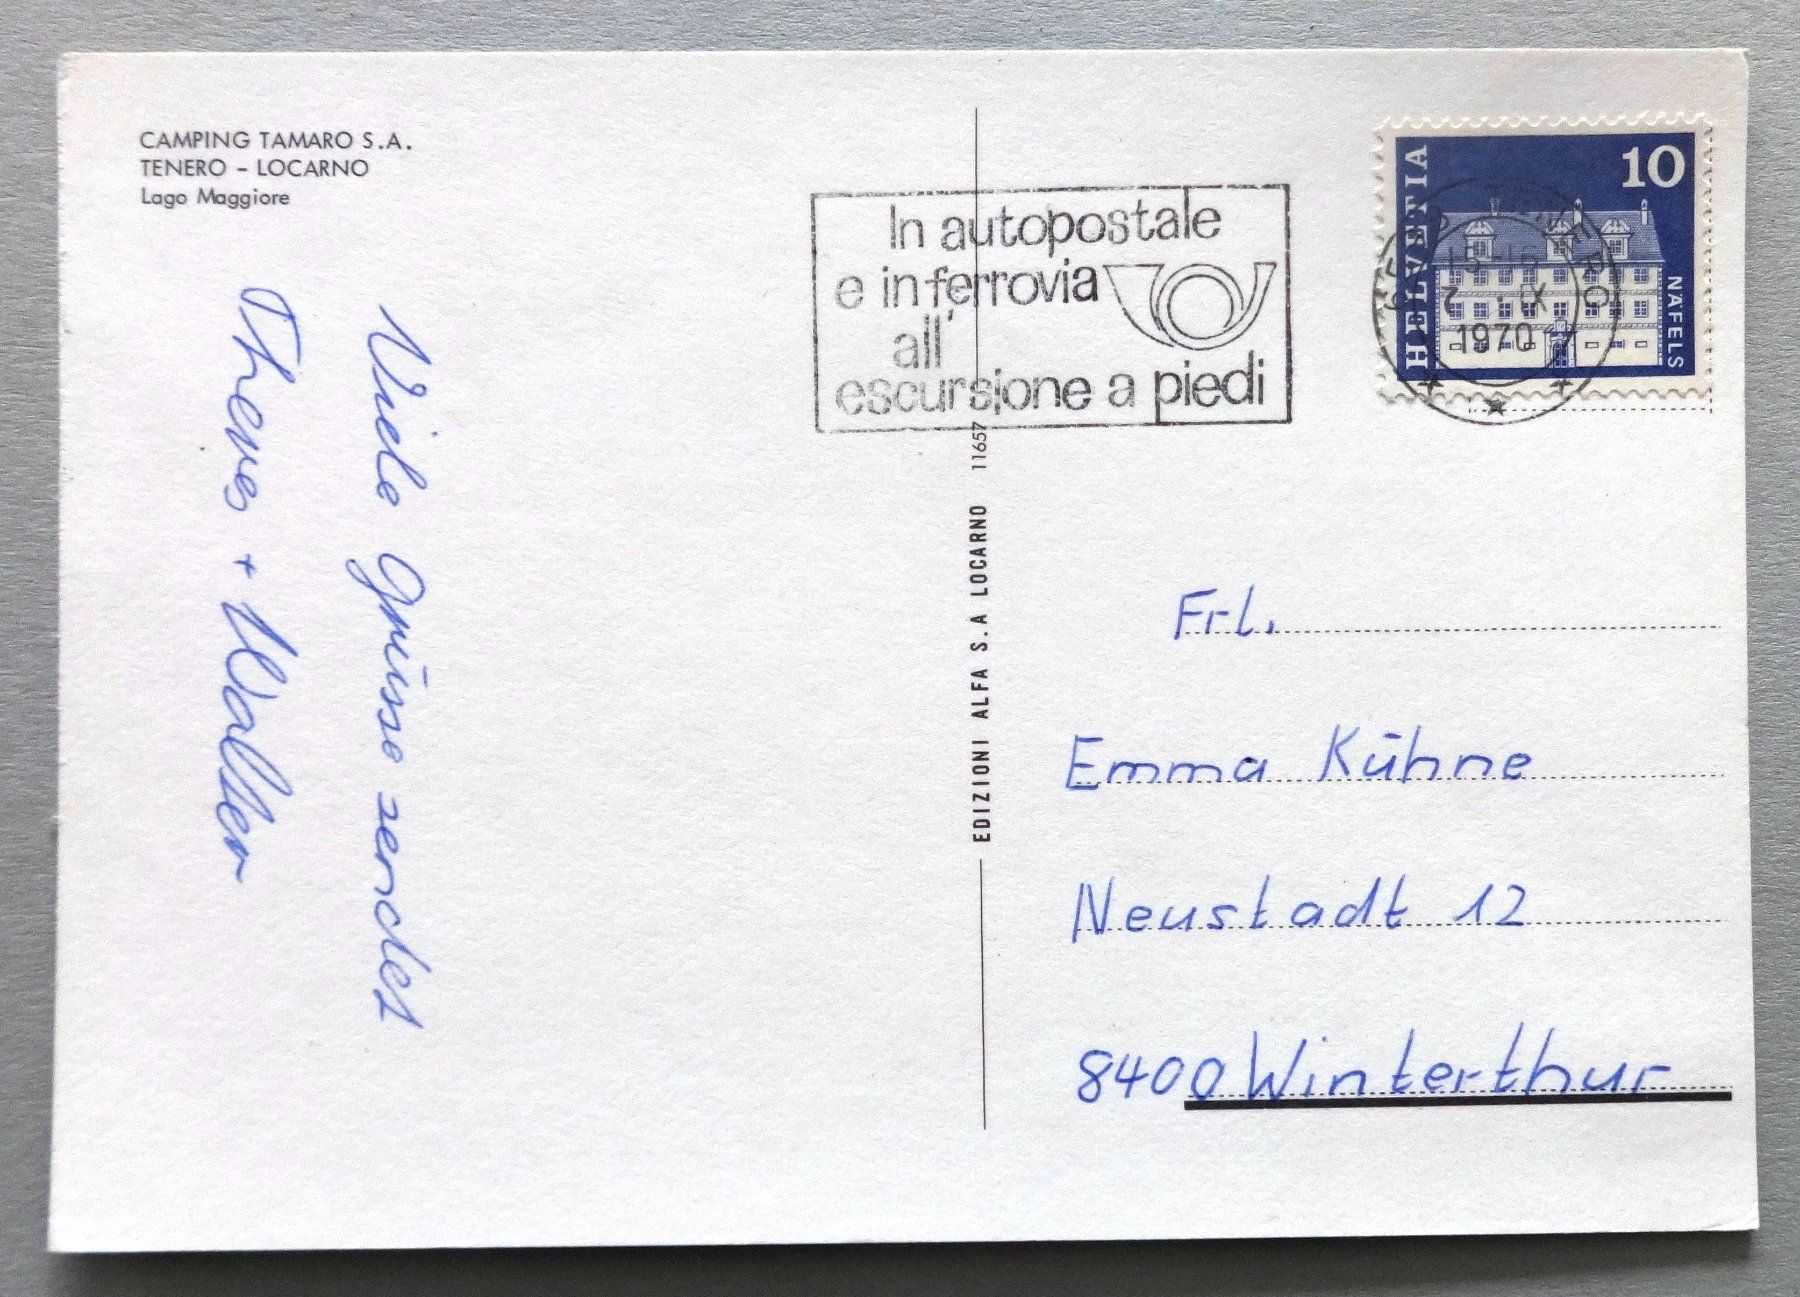 CAMPING TAMARO S.A.
TENERO - LOCARNO
Lago Maggiore
Viele Grüsse sendet
+ Walter
In autopostale
e in ferrovia
all'
escursione a piedi
EDIZIONI ALFA S.A LOCARNO 11657
HELVETIA
10
NÄFELS
TENERO
15-16
1970
Frl.
Emma Kühne
Neustadt 12
8400 Winterthur